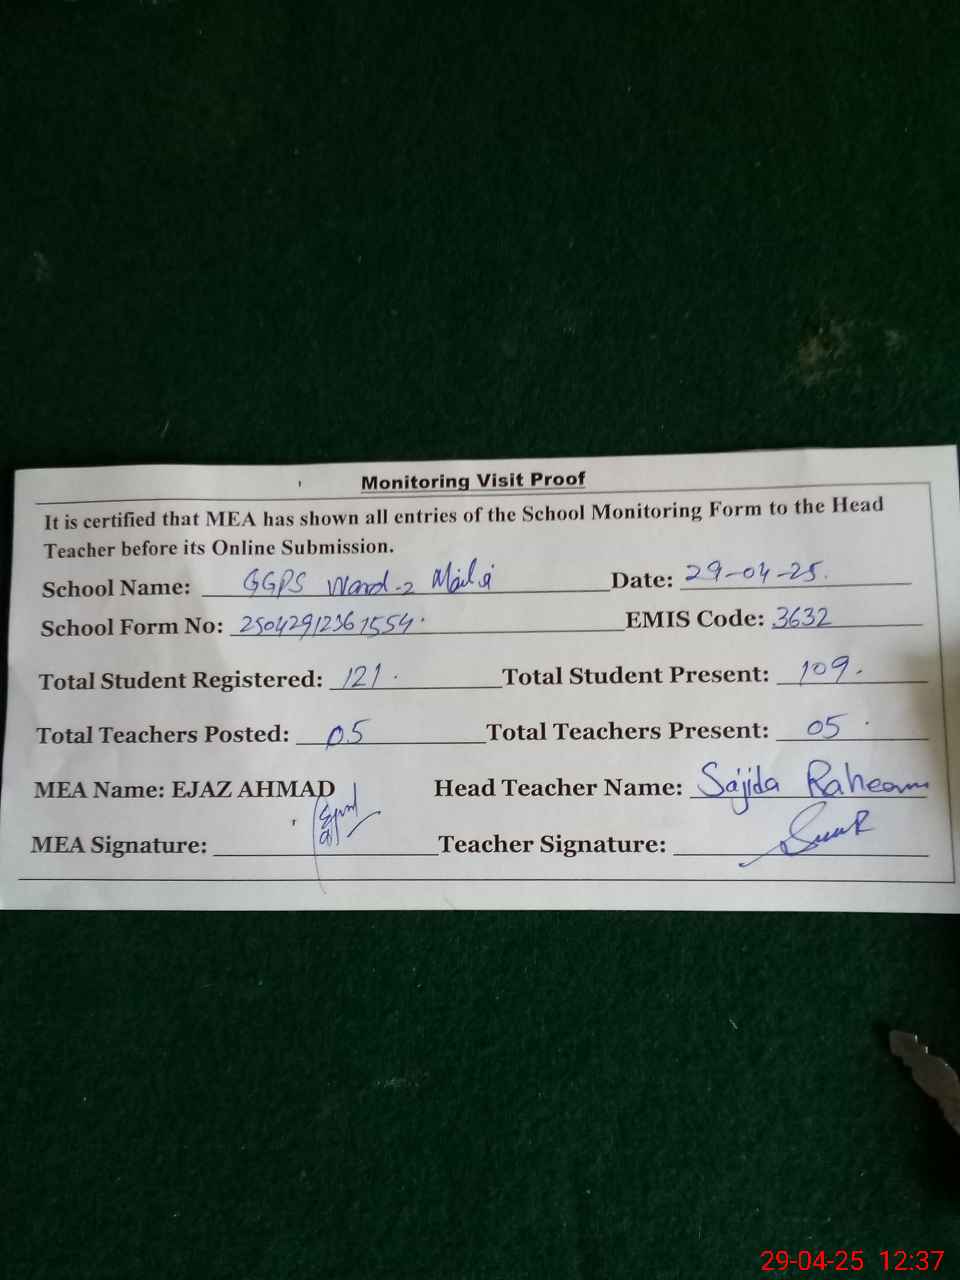 Monitoring Visit Proof
It is certified that MEA has shown all entries of the School Monitoring Form to the Head
Teacher before its Online Submission.
School Name: GGPS Ward-2 Mailsi Date: 29-04-25.
School Form No: 25042912361554. EMIS Code: 3632
Total Student Registered: 121. Total Student Present: 109.
Total Teachers Posted: 05 Total Teachers Present: 05.
MEA Name: EJAZ AHMAD Head Teacher Name: Sajida Raheem
MEA Signature: Teacher Signature:
29-04-25 12:37